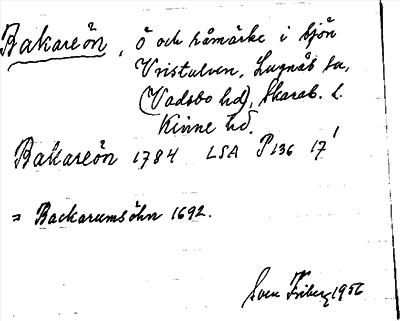 Bakareön, ö och råmärke i sjön
Vristulven, Lugnås sn,
(Vadsbo hd), Skarab. l.
Kinne hd.
Bakareön 1784 LSA P136 17¹
= Backarumsöhn 1692.
Sven Friberg 1956